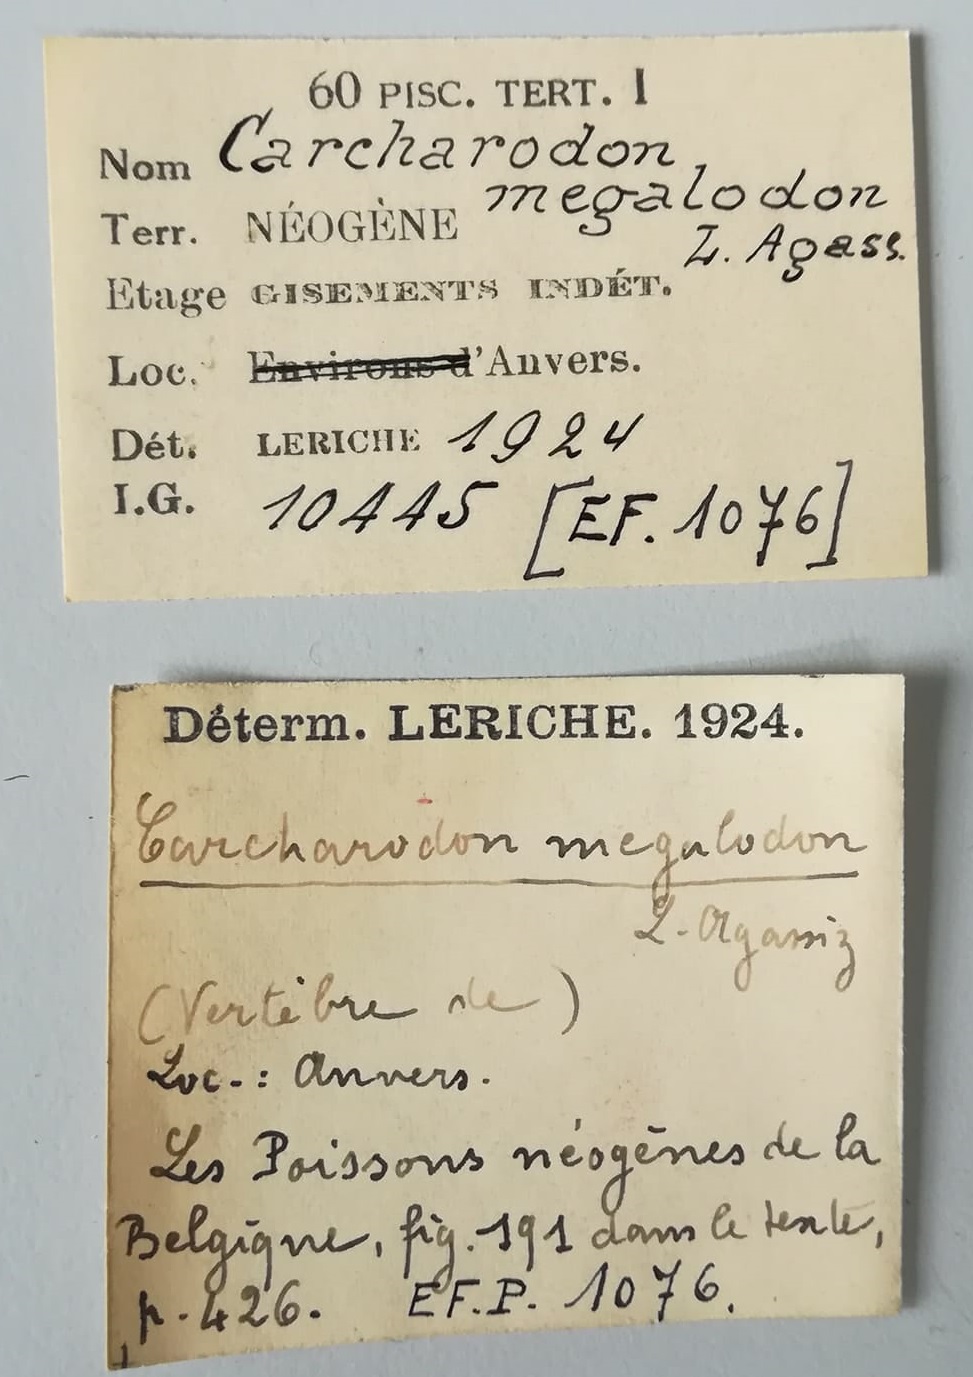 60 PISC. TERT. I
Nom Carcharodon
megalodon
Terr. NÉOGÈNE
L. Agass.
Etage GISEMENTS INDÉT.
Loc. Environs d'Anvers.
Dét. LERICHE 1924
I.G. 10445 [EF. 1076]
Déterm. LERICHE. 1924.
Carcharodon megalodon
L. Agassiz
(Vertèbre de)
Loc.: Anvers.
Les Poissons néogènes de la
Belgique, fig. 191 dans le texte,
p. 426. EF.P. 1076.